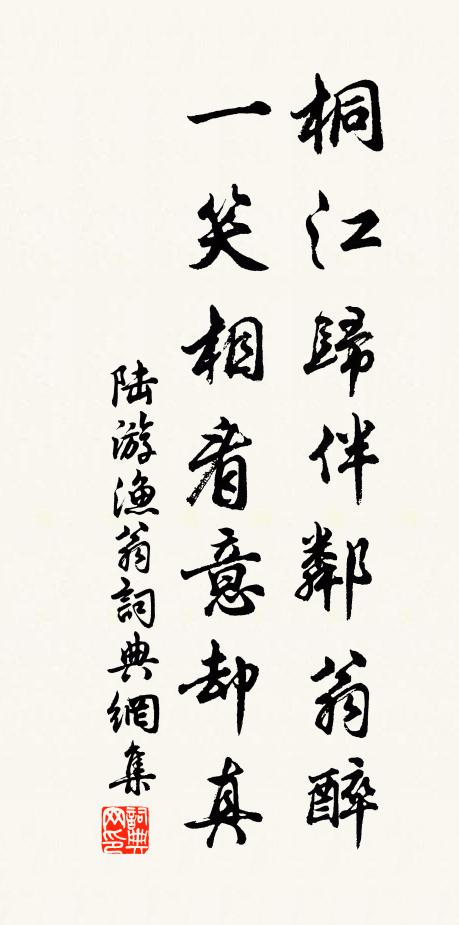 桐江歸伴鄰翁醉
一笑相看意却真
陸游漁翁詞典網集
詞典
网印